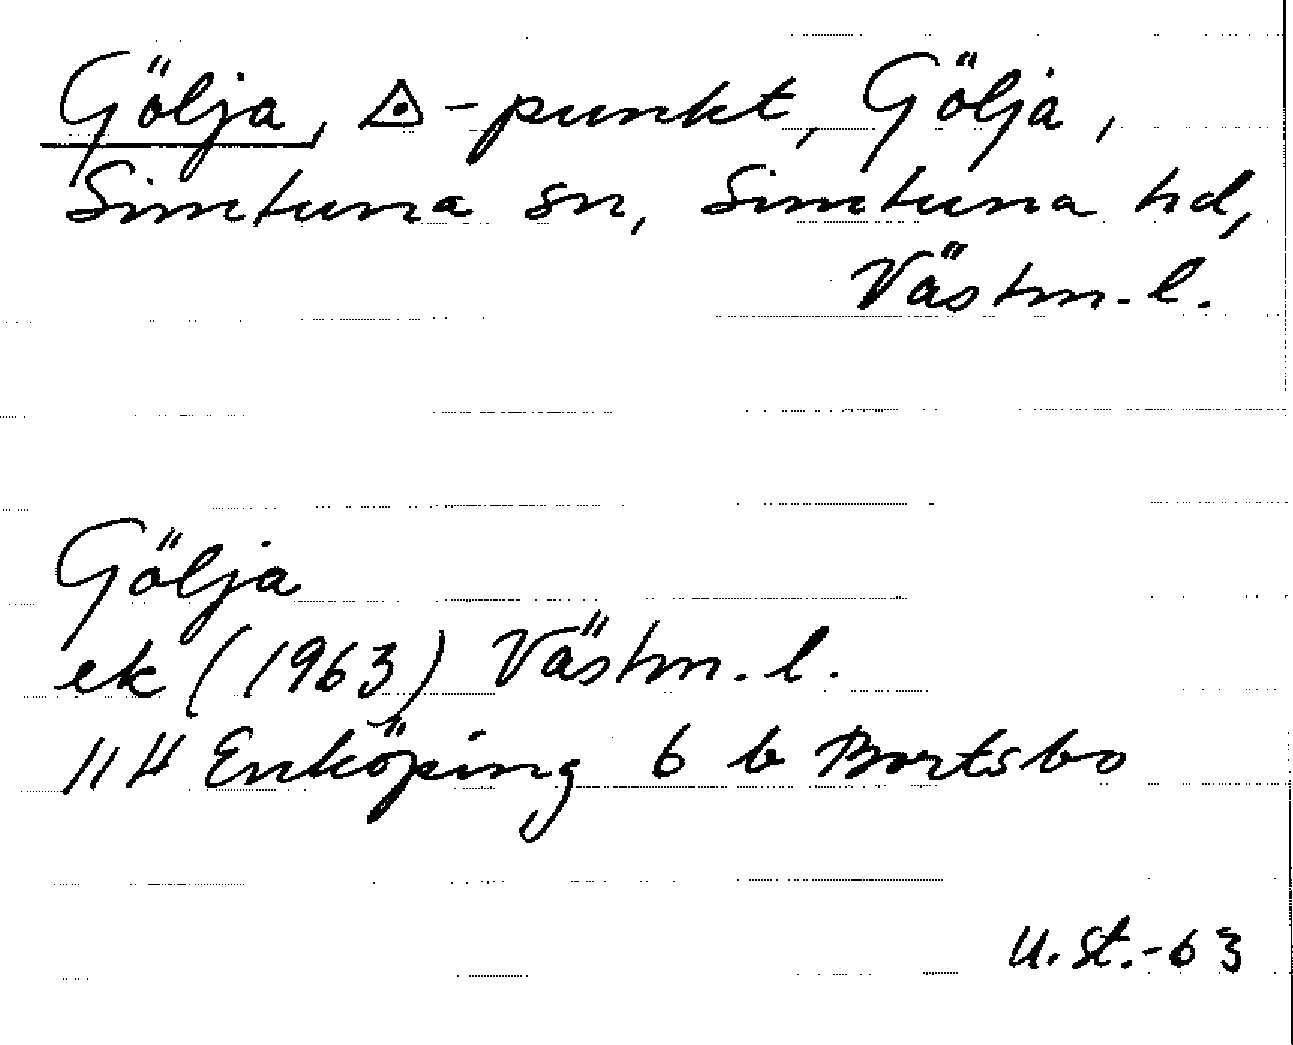 Gölja, △-punkt, Gölja,
Simtuna sn, Simtuna hd,
Västm. l.
Gölja
ek (1963) Västm. l.
11H Enköping 6 b Bortsbo
U. St.-63